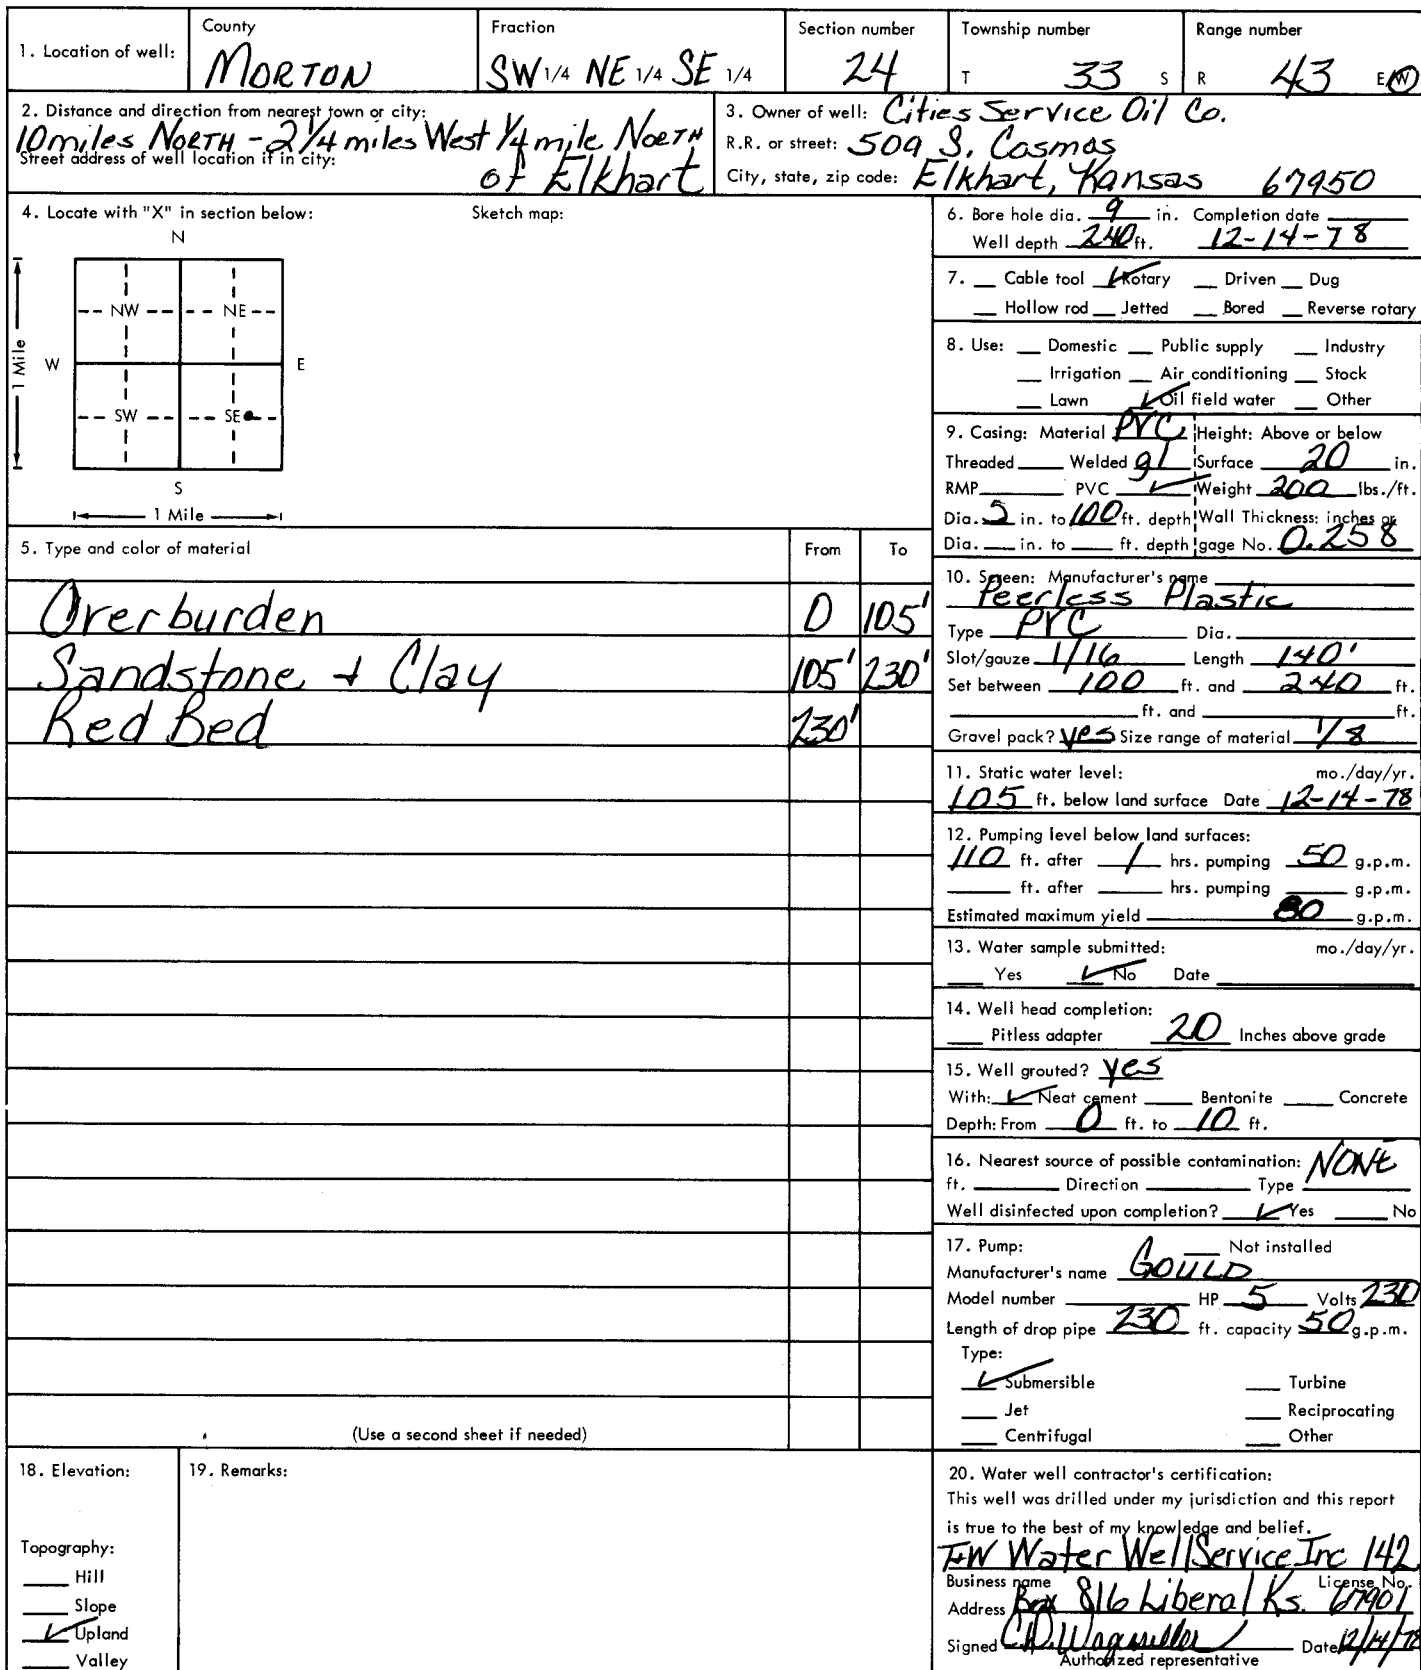 1. Location of well:
County
MORTON
Fraction
SW 1/4 NE 1/4 SE 1/4
Section number
24
Township number
T 33 S
Range number
R 43 E/W
2. Distance and direction from nearest town or city:
10 miles NORTH - 2 1/4 miles West 1/4 mile NORTH
Street address of well location if in city:
of Elkhart
3. Owner of well: Cities Service Oil Co.
R.R. or street: 509 S. Cosmos
City, state, zip code: Elkhart, Kansas 67950
4. Locate with "X" in section below:
Sketch map:
N
NW NE
W E
1 Mile
SW SE
S
1 Mile
5. Type and color of material From To
Overburden 0 105'
Sandstone + Clay 105' 230'
Red Bed 230'
(Use a second sheet if needed)
6. Bore hole dia. 9 in. Completion date
Well depth 240 ft. 12-14-78
7. Cable tool ✓ Rotary Driven Dug
Hollow rod Jetted Bored Reverse rotary
8. Use: Domestic Public supply Industry
Irrigation Air conditioning Stock
Lawn ✓ Oil field water Other
9. Casing: Material PVC Height: Above or below
Threaded Welded gl Surface 20 in.
RMP PVC ✓ Weight 200 lbs./ft.
Dia. 5 in. to 100 ft. depth Wall Thickness: inches or
Dia. in. to ft. depth gage No. 0.258
10. Screen: Manufacturer's name
Peerless Plastic
Type PVC Dia.
Slot/gauze 1/16 Length 140'
Set between 100 ft. and 240 ft.
ft. and ft.
Gravel pack? yes Size range of material 1/8
11. Static water level: mo./day/yr.
105 ft. below land surface Date 12-14-78
12. Pumping level below land surfaces:
110 ft. after 1 hrs. pumping 50 g.p.m.
ft. after hrs. pumping g.p.m.
Estimated maximum yield 80 g.p.m.
13. Water sample submitted: mo./day/yr.
Yes ✓ No Date
14. Well head completion:
Pitless adapter 20 Inches above grade
15. Well grouted? yes
With: ✓ Neat cement Bentonite Concrete
Depth: From 0 ft. to 10 ft.
16. Nearest source of possible contamination: NONE
ft. Direction Type
Well disinfected upon completion? ✓ Yes No
17. Pump: Not installed
Manufacturer's name GOULD
Model number HP 5 Volts 230
Length of drop pipe 230 ft. capacity 50 g.p.m.
Type:
✓ Submersible Turbine
Jet Reciprocating
Centrifugal Other
18. Elevation:
Topography:
Hill
Slope
✓ Upland
Valley
19. Remarks:
20. Water well contractor's certification:
This well was drilled under my jurisdiction and this report
is true to the best of my knowledge and belief.
Water Well Service Inc 142
Business name License No.
Address Box 816 Liberal Ks. 67901
Signed Date 12/14/78
Authorized representative